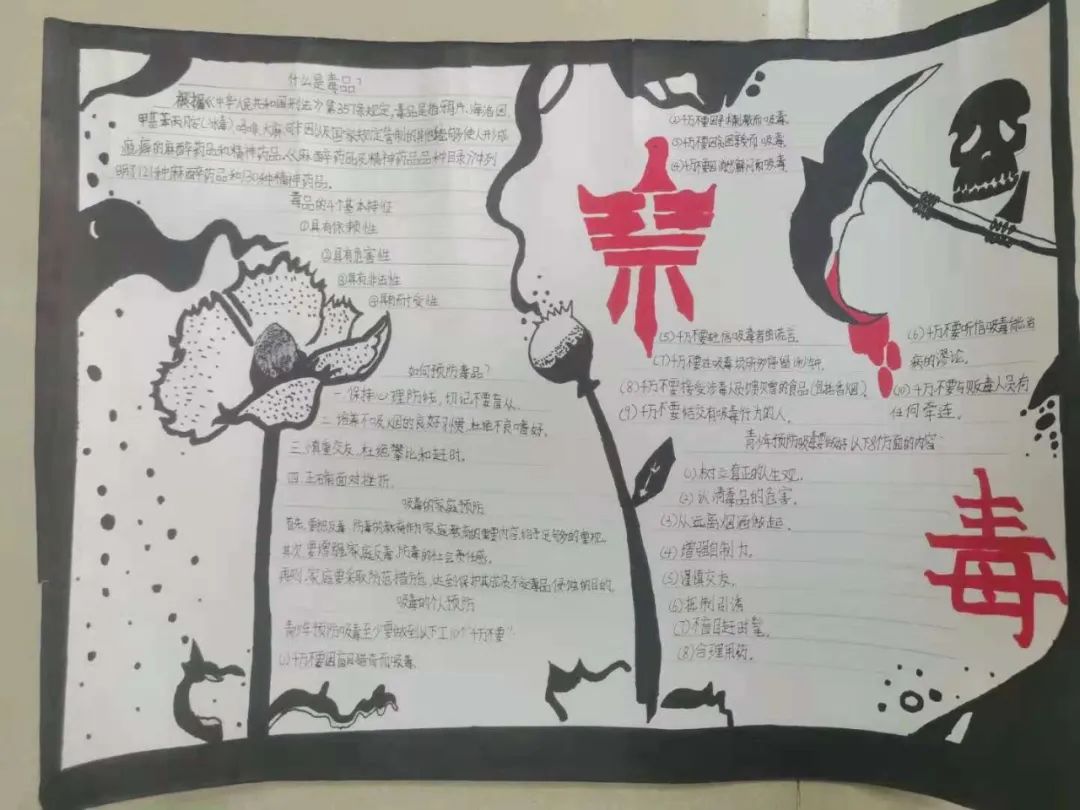 什么是毒品？
根据《中华人民共和国刑法》第357条规定，毒品是指鸦片、海洛因、
甲基苯丙胺（冰毒）、吗啡、大麻、可卡因以及国家规定管制的其他能够使人形成
瘾癖的麻醉药品和精神药品。《麻醉药品及精神药品品种目录》中列
明了121种麻醉药品和130种精神药品。
毒品的4个基本特征
①具有依赖性
②具有危害性
③具有非法性
④具有耐受性
如何预防毒品？
一、保持心理防线，切记不要盲从。
二、培养不吸烟的良好习惯，杜绝不良嗜好。
三、慎重交友，杜绝攀比和赶时。
四、正确面对挫折。
吸毒的家庭预防
首先，要把反毒、防毒的教育作为家庭教育的重要内容，给予足够的重视。
其次，要增强家庭反毒、防毒的社会责任感。
再则，家庭要采取防范措施，达到保护其成员不受毒品侵蚀的目的。
吸毒的个人预防
青少年预防吸毒至少要做到以下10个"千万不要"
(1)千万不要因盲目猎奇而吸毒。
(2)千万不要因寻求刺激而吸毒。
(3)千万不要因
而吸毒。
(4)千万不要因
解闷而吸毒。
禁
(5)千万不要轻信吸毒者的谎言。
(6)千万不要听信吸毒能治
病的谬论。
(7)千万不要在吸毒场所多停留一分钟。
(8)千万不要接受涉毒人员馈赠的食品（包括香烟）。
(9)千万不要结交有吸毒行为的人。
(10)千万不要与贩毒人员有
任何牵连。
青少年预防吸毒要做好以下8个方面的内容
(1)树立真正的人生观。
(2)认清毒品的危害。
(3)从远离烟酒做起。
(4)增强自制力。
(5)谨慎交友。
(6)抵制引诱
(7)不盲目赶时髦。
(8)合理用药。
毒